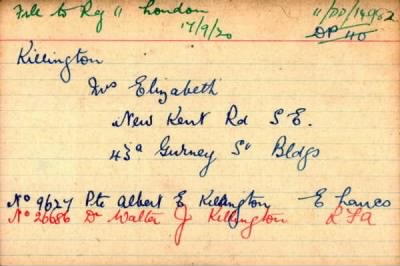 File to Reg " London 11/DD/14962
17/9/20 DP 40
Killington
Mrs Elizabeth
New Kent Rd S E.
43a Gurney St Bldgs
No 9627 Pte Albert E Killington E Lancs
No 26686 Dr Walter J Killington RFA